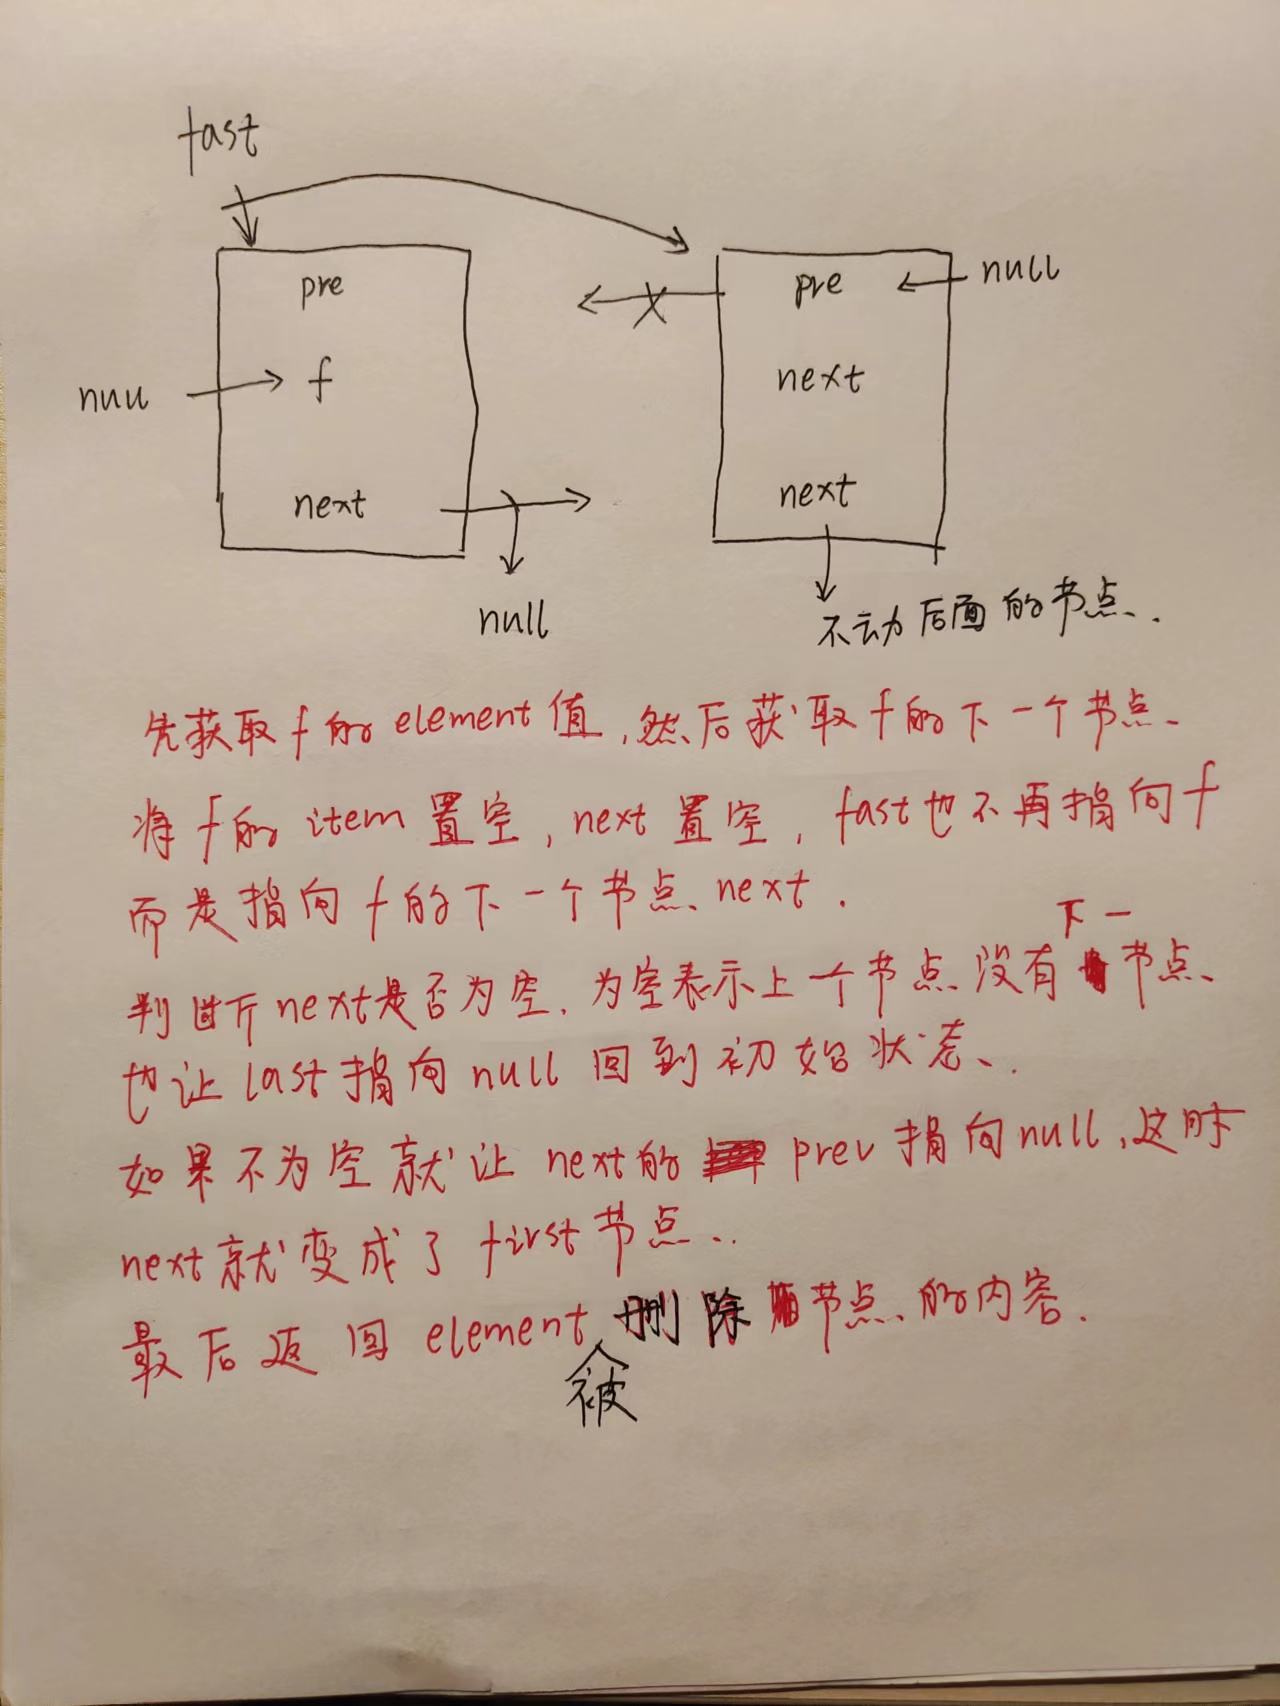 fast
pre
pre
null
null
f
next
next
next
null
不动后面的节点.
先获取f的element值,然后获取f的下一个节点.
将f的item置空,next置空,fast也不再指向f
而是指向f的下一个节点next.
判断next是否为空.为空表示上一个节点没有下一节点.
也让last指向null回到初始状态.
如果不为空就让next的prev指向null,这时
next就变成了first节点.
最后返回element被删除节点的内容.